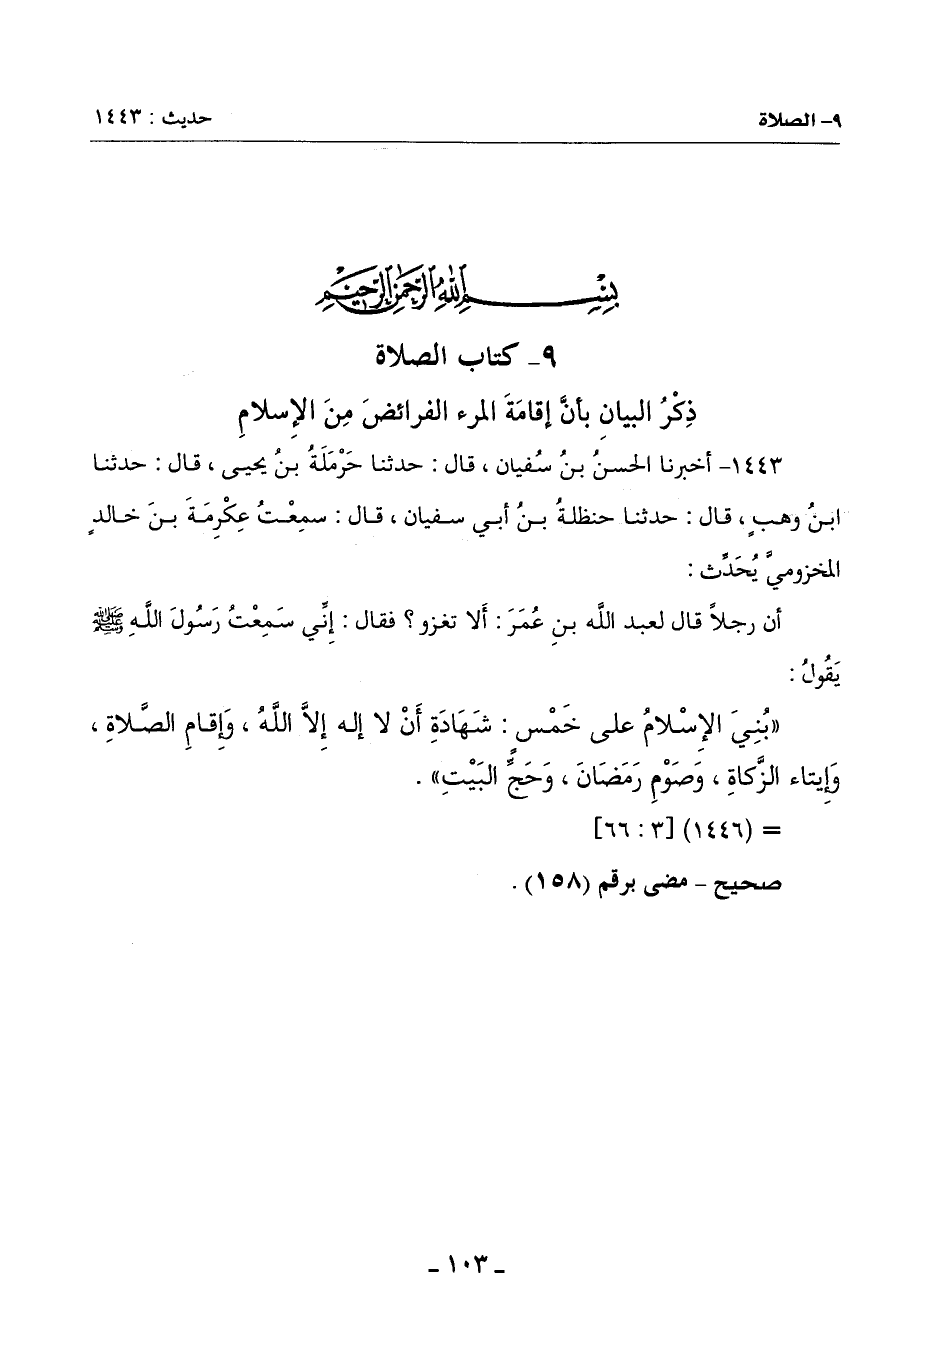 ٩- الصلاة حديث : ١٤٤٣
بِسْمِ اللهِ الرَّحْمَنِ الرَّحِيمِ
٩- كتاب الصلاة
ذِكْرُ البيانِ بأنَّ إقامَةَ المرء الفرائضَ مِنَ الإسلامِ
١٤٤٣- أخبرنا الحسنُ بنُ سُفيان ، قال : حدثنا حَرْمَلَةُ بنُ يحيى ، قال : حدثنا
ابنُ وهبٍ ، قال : حدثنا حنظلةُ بنُ أبي سفيان ، قال : سمِعْتُ عِكْرِمَةَ بنَ خالدٍ
المخزوميَّ يُحَدِّث :
أن رجلاً قال لعبد اللَّه بنِ عُمَرَ : ألا تغزو ؟ فقال : إنِّي سَمِعْتُ رَسُولَ اللَّهِ ﷺ
يَقُولُ :
«بُنِيَ الإِسْلامُ على خَمْسٍ : شَهَادَةِ أَنْ لا إله إلاَّ اللَّهُ ، وَإِقامِ الصَّلاةِ ،
وَإِيتاء الزَّكاةِ ، وَصَوْمِ رَمَضَانَ ، وَحَجِّ البَيْتِ» .
= (١٤٤٦) [٣ : ٦٦]
صحيح - مضى برقم (١٥٨) .
- ١٠٣ -